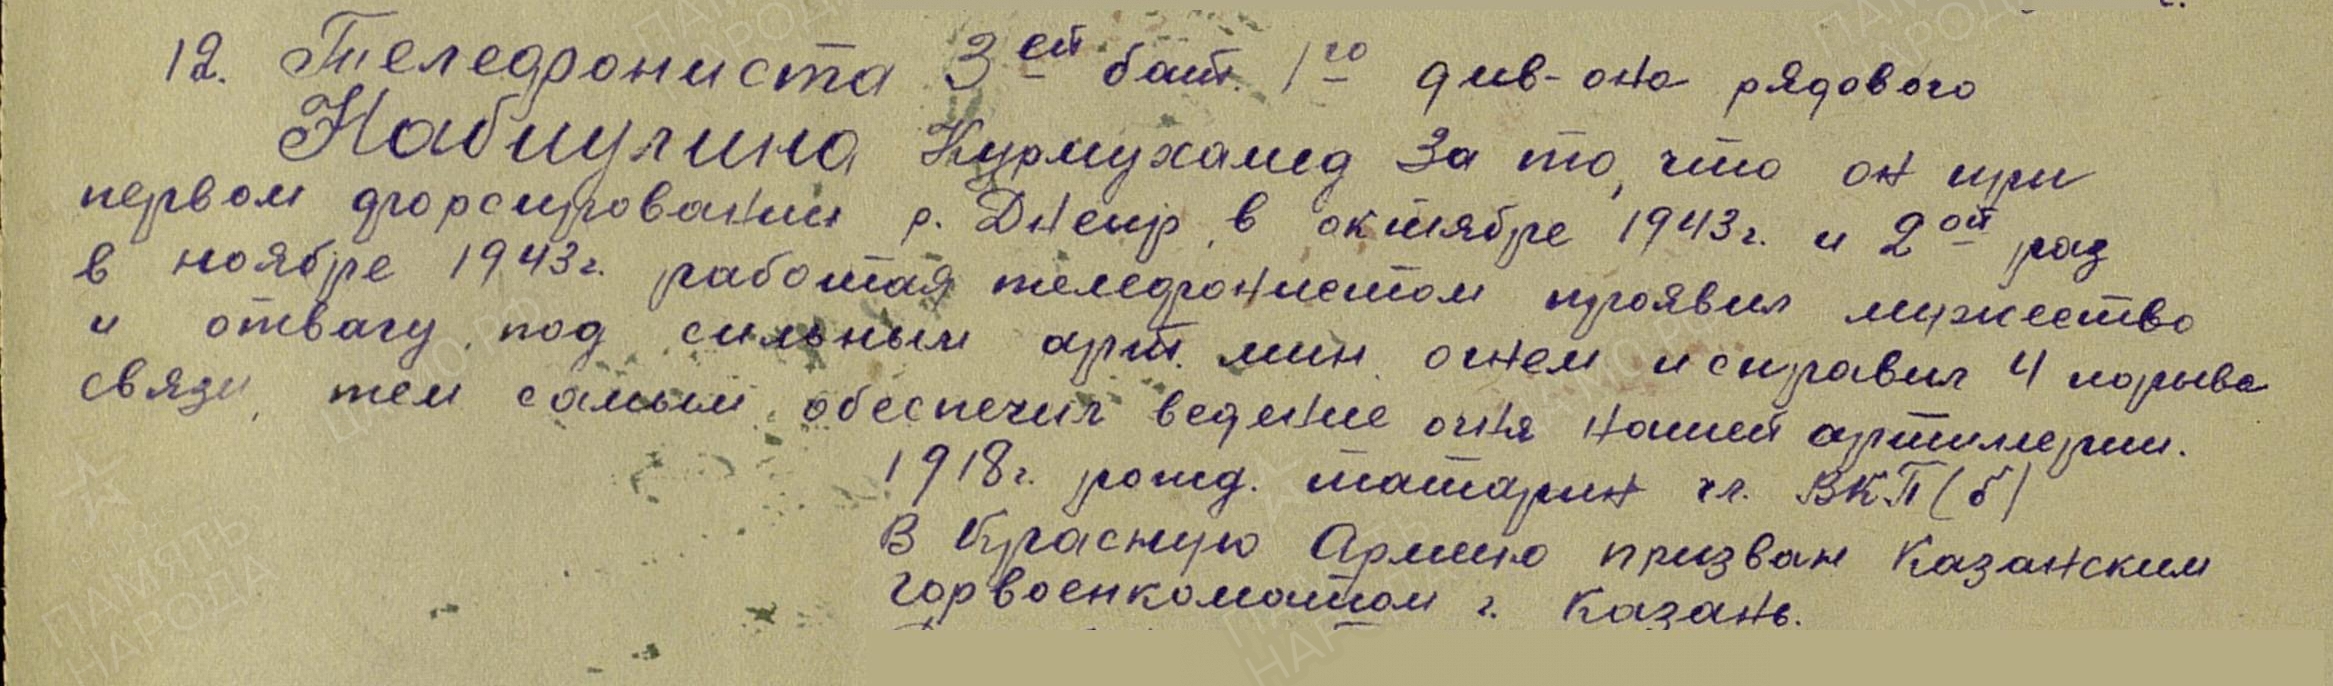 12. Телефониста 3ей бат. 1го див-она рядового
Набиулина Нурмухамед За то, что он при
первом форсировании р. Днепр в октябре 1943г. и 2ой раз
в ноябре 1943г. работая телефонистом проявил мужество
и отвагу под сильным арт. мин. огнем исправил 4 порыва
связи, тем самым обеспечил ведение огня нашей артиллерии.
1918г. рожд. татарин чл. ВКП(б)
В Красную Армию призван Казанским
горвоенкоматом г. Казань.
ПАМЯТЬ
НАРОДА